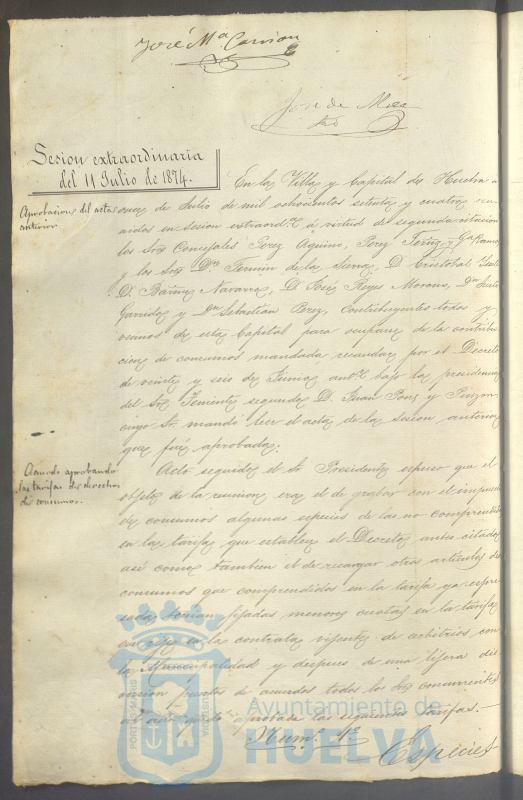 José Mª Carrion
José de Mora
Sesion extraordinaria
del 11 Julio de 1874.
Aprobacion del acta
anterior
En la Villa y Capital de Huelva a
once de Julio de mil ochocientos setenta y cuatro reu-
nidos en sesion extraord.ª a virtud de segunda citacion
los Sres Concejales Perez Aquino, Perez
y los Sres Dn Fermin de la Sierra, D. Cristobal
D. Navarro, D. José Reyes Moreno, Dn Justo
Garrido y Dn Sebastian Perez, contribuyentes todos y
vecinos de esta Capital para ocuparse de la contribu-
cion de consumos mandada recaudar por el Decreto
de veinte y seis de Junio antr bajo la presidencia
del Sr Teniente segundo D. Juan Pons y
cuyo Sr mandó leer el acta de la sesion anterior
que fué aprobada.
Acuerdo aprobando
las tarifas de derechos
de consumos.
Acto seguido el Sr Presidente espuso que el
objeto de la reunion era el de grabar con el impuesto
de consumos algunas especies de las no comprendidas
en la tarifa que establece el Decreto antes citado
así como tambien el de recargar otros articulos de
consumos que comprendidos en la tarifa ya espre
sada tenian fijadas menores cuotas en la tarifa
que rije en las contratas vigentes de arbitrios con
la Municipalidad y despues de una lijera dis
cusion puestos de acuerdo todos los Sres concurrentes
aprobada las siguientes tarifas.—
Num.º 1º
Especies
PORTUS MARIS
ET TERRAE CUSTODIA
Ayuntamiento de
HUELVA